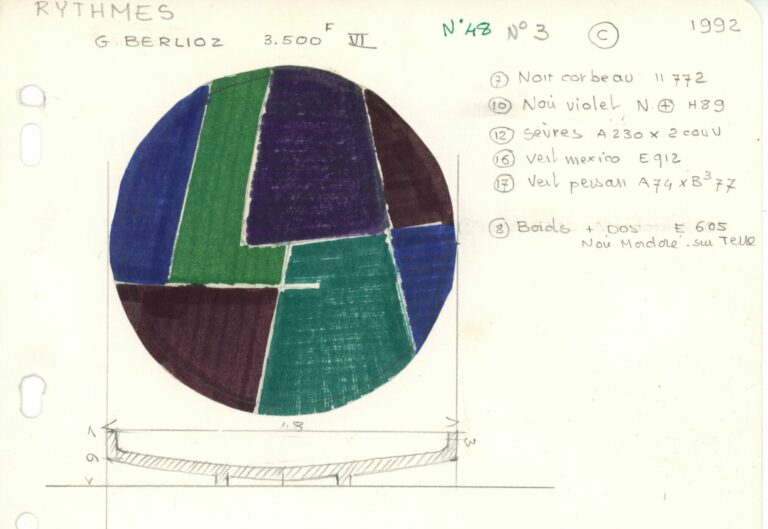 RYTHMES
G. BERLIOZ 3.500 F VI N°48 N°3 C 1992
7 Noir corbeau 11 772
10 Noir violet N ⊕ H89
12 Sèvres A230 x 2 couv
16 Vert mexico E912
17 Vert persan A74 x B³77
8 Bords + Dos E 605
Noir Mordoré sur Terre
1.8
6
3